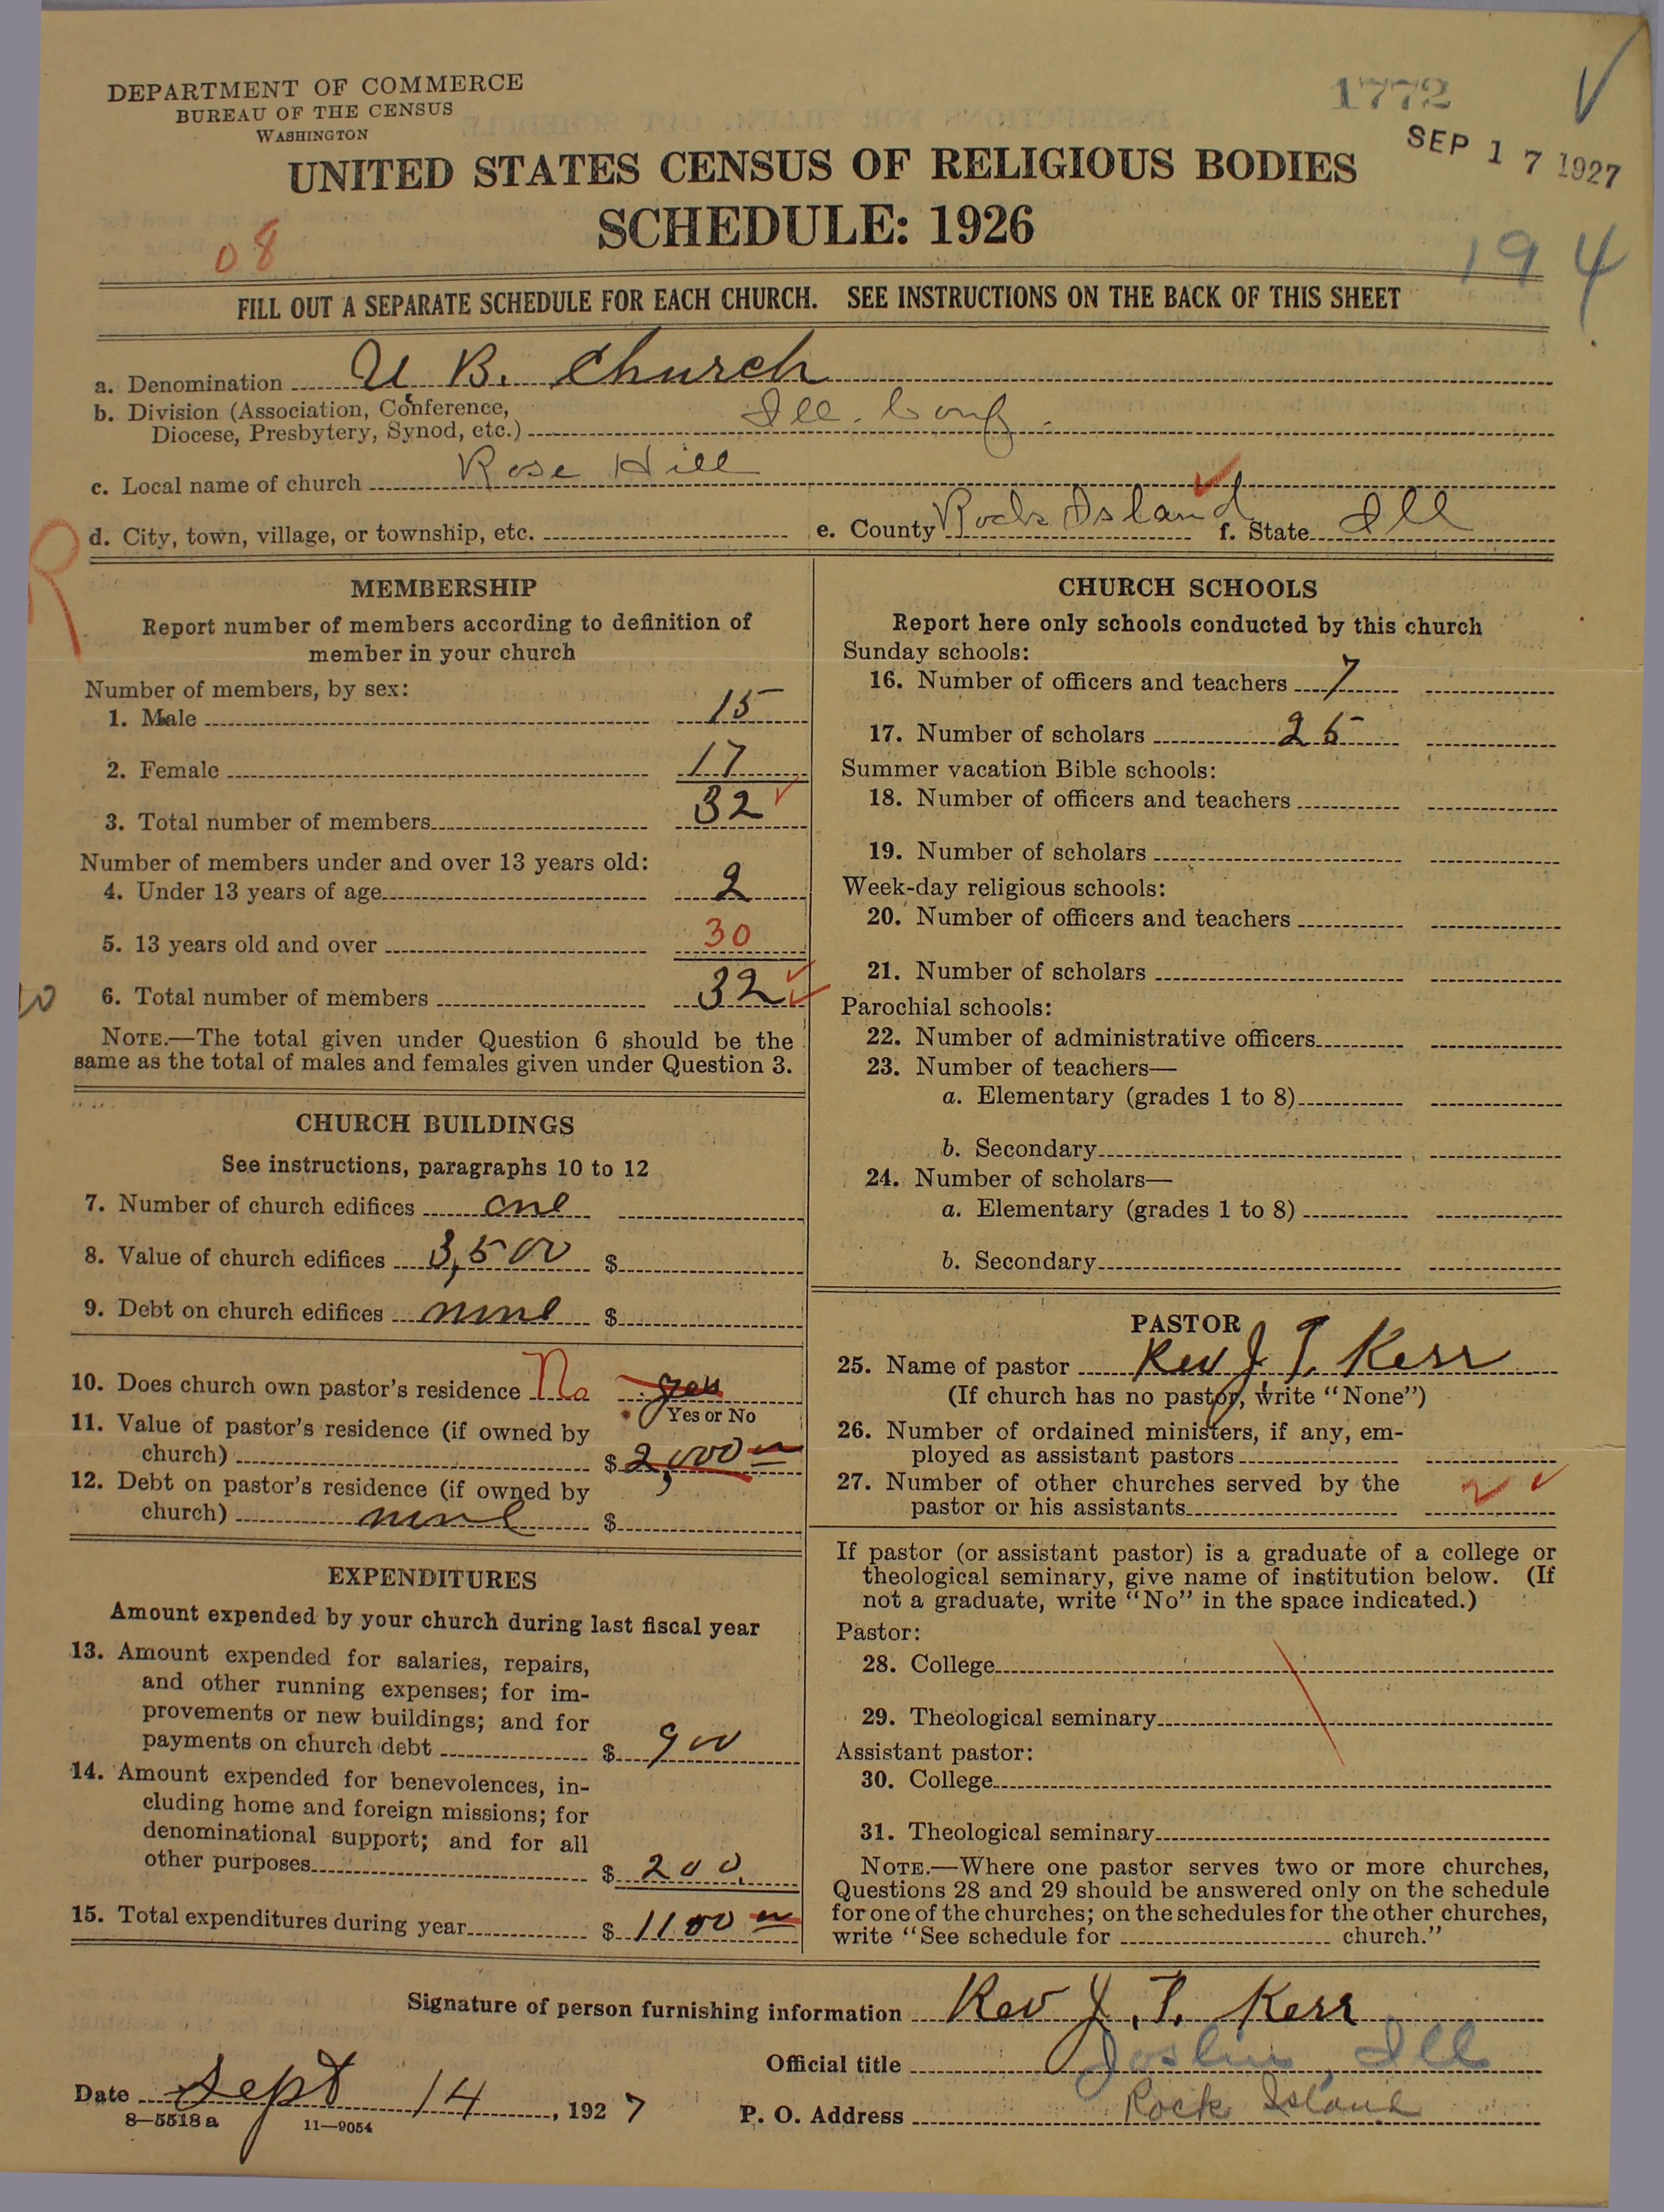 DEPARTMENT OF COMMERCE
BUREAU OF THE CENSUS
WASHINGTON
1772
SEP 17 1927
UNITED STATES CENSUS OF RELIGIOUS BODIES
SCHEDULE: 1926
08
194
FILL OUT A SEPARATE SCHEDULE FOR EACH CHURCH. SEE INSTRUCTIONS ON THE BACK OF THIS SHEET
a. Denomination U. B. Church
b. Division (Association, Conference,
Diocese, Presbytery, Synod, etc.) Ill. Conf.
c. Local name of church Rose Hill
d. City, town, village, or township, etc. e. County Rock Island f. State Ill
R
MEMBERSHIP
Report number of members according to definition of
member in your church
Number of members, by sex:
1. Male 15
2. Female 17
3. Total number of members 32
Number of members under and over 13 years old:
4. Under 13 years of age 2
5. 13 years old and over 30
6. Total number of members 32
NOTE.—The total given under Question 6 should be the
same as the total of males and females given under Question 3.
CHURCH BUILDINGS
See instructions, paragraphs 10 to 12
7. Number of church edifices one
8. Value of church edifices 3,500 $
9. Debt on church edifices none $
10. Does church own pastor's residence No yes
Yes or No
11. Value of pastor's residence (if owned by
church) $ 2,000
12. Debt on pastor's residence (if owned by
church) none $
EXPENDITURES
Amount expended by your church during last fiscal year
13. Amount expended for salaries, repairs,
and other running expenses; for im-
provements or new buildings; and for
payments on church debt $ 900
14. Amount expended for benevolences, in-
cluding home and foreign missions; for
denominational support; and for all
other purposes $ 200.
15. Total expenditures during year $ 1100
CHURCH SCHOOLS
Report here only schools conducted by this church
Sunday schools:
16. Number of officers and teachers 7
17. Number of scholars 25
Summer vacation Bible schools:
18. Number of officers and teachers
19. Number of scholars
Week-day religious schools:
20. Number of officers and teachers
21. Number of scholars
Parochial schools:
22. Number of administrative officers
23. Number of teachers—
a. Elementary (grades 1 to 8)
b. Secondary
24. Number of scholars—
a. Elementary (grades 1 to 8)
b. Secondary
PASTOR
25. Name of pastor Rev J. T. Kerr
(If church has no pastor, write "None")
26. Number of ordained ministers, if any, em-
ployed as assistant pastors
27. Number of other churches served by the
pastor or his assistants 2
If pastor (or assistant pastor) is a graduate of a college or
theological seminary, give name of institution below. (If
not a graduate, write "No" in the space indicated.)
Pastor:
28. College
29. Theological seminary
Assistant pastor:
30. College
31. Theological seminary
NOTE.—Where one pastor serves two or more churches,
Questions 28 and 29 should be answered only on the schedule
for one of the churches; on the schedules for the other churches,
write "See schedule for church."
Signature of person furnishing information Rev J. T. Kerr
Official title Joslin, Ill
Date Sept 14, 1927
P. O. Address Rock Island
8—5518a 11—9054